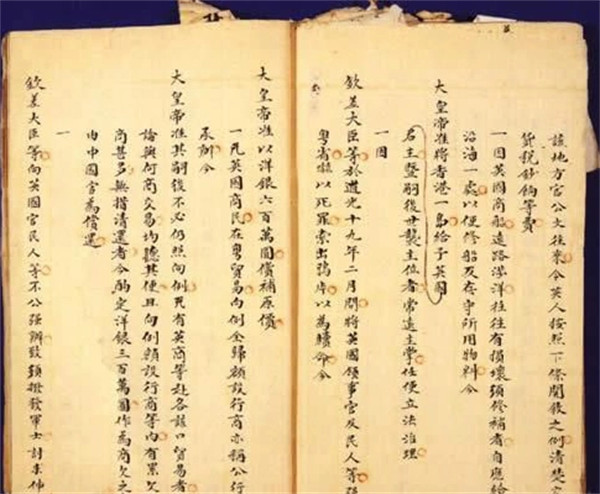 該地方官公文往來令英人按照下條開敘之例清楚
貨稅鈔餉等費
一因英國商船遠路涉洋往往有損壞須修補者自應給
沿海一處以便修船及存守所用物料今
大皇帝准將香港一島給予英國
君主暨嗣後世襲主位者常遠主掌任便立法治理
一因
欽差大臣等於道光十九年二月間將英國領事官及民人等強
粵省嚇以死罪索出鴉片以為贖命今
大皇帝准以洋銀六百萬圓償補原價
一凡英國商民在粵貿易向例全歸額設行商亦稱公行
承辦今
大皇帝准其嗣後不必仍照向例凡有英商等赴各該口貿易者
論與何商交易均聽其便且向例額設行商等內有累欠
商甚多無措清還者今酌定洋銀三百萬圓作為商欠之
由中國官為償還
一
欽差大臣等向英國官民人等不公強辦致須撥發軍士討求伸